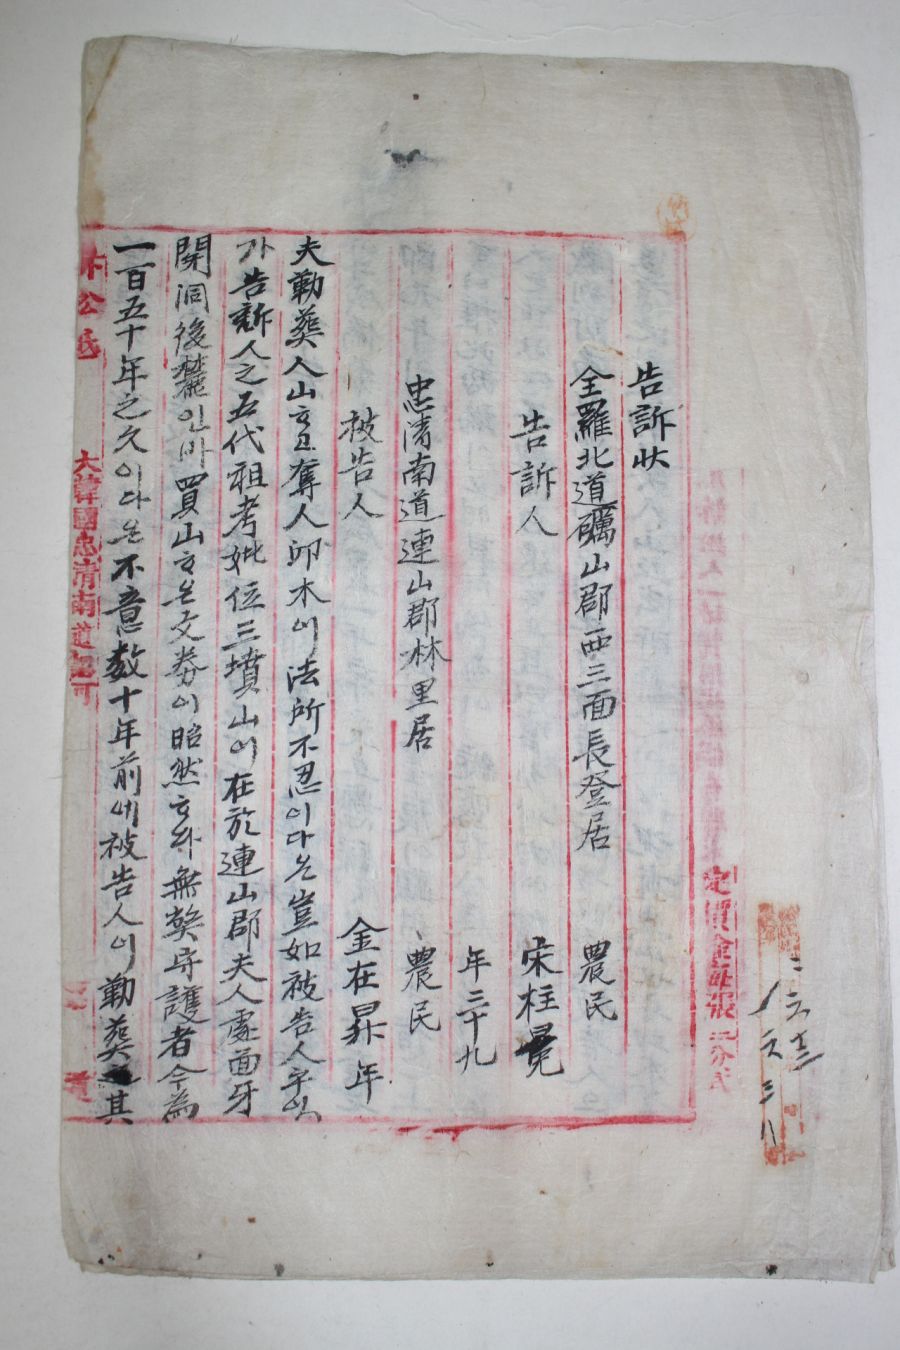 告訴狀
全羅北道礪山郡西三面長登居 農民
告訴人 宋柱
年三十九
忠清南道連山郡林里居 農民
被告人 金在昇 年
夫勒葬人山ᄒᆞ고奪人卭木이法所不忍이다온豈如被告人乎잇
가告訴人之五代祖考妣位三墳山이在於連山郡夫人處面牙
開洞後麓인바買山ᄒᆞ온文券이昭然ᄒᆞ와無獘守護者今為
一百五十年之久이다온不意數十年前에被告人이勒葬其
訟公紙
大韓國忠清南道認可
定價金每張